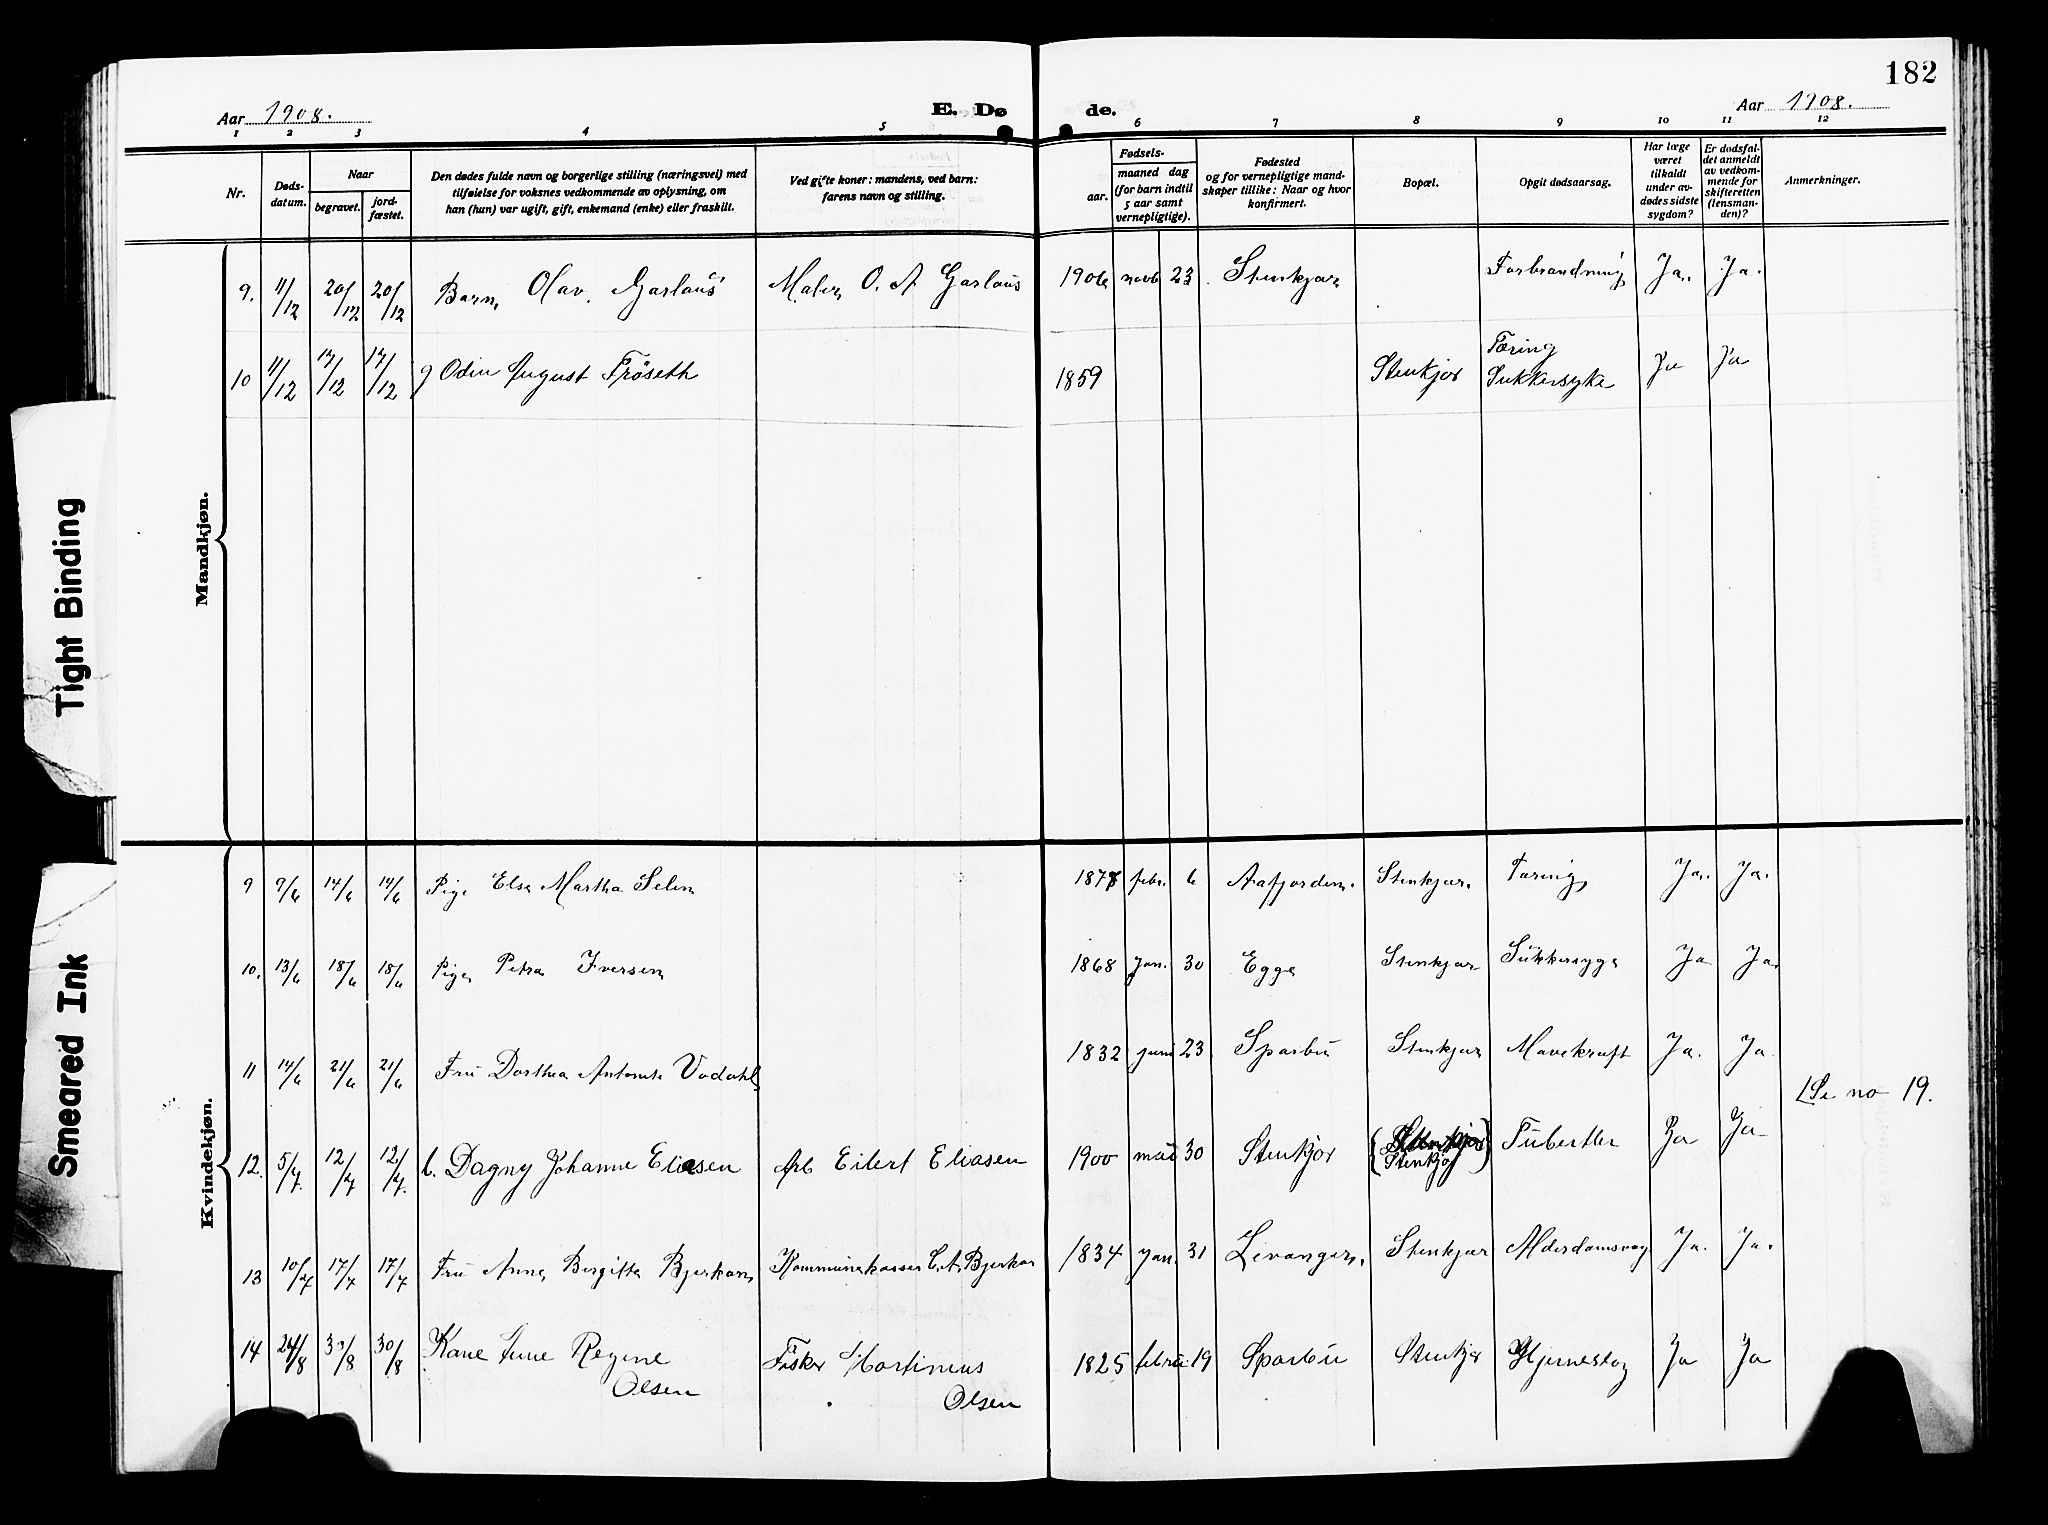 182
Aar 1908.
E. Dø
de.
Aar 1908.
1 2 3 4 5 6 7 8 9 10 11 12
Nr.
Døds-
datum.
Naar
begravet.
jord-
fæstet.
Den dødes fulde navn og borgerlige stilling (næringsvei) med
tilføielse for voksnes vedkommende av oplysning, om
han (hun) var ugift, gift, enkemand (enke) eller fraskilt.
Ved gifte koner: mandens, ved barn:
farens navn og stilling.
Fødsels-
aar.
maaned dag
(for barn indtil
5 aar samt
vernepligtige).
Fødested
og for vernepligtige mand-
skaper tillike: Naar og hvor
konfirmert.
Bopæl.
Opgit dødsaarsag.
Har læge
været
tilkaldt
under av-
dødes sidste
sygdom?
Er dødsfal-
det anmeldt
av vedkom-
mende for
skifteretten
(lensman-
den)?
Anmerkninger.
Mandkjøn.
9. 11/12 20/12 20/12 Barn Olav Garlaus Maler O. A Garlaus 1906 novb 23 Stenkjær Forbrændning Ja. Ja.
10 11/12 17/12 17/12 g Odin August Fröseth 1859 Stenkjær Tæring Sukkersyke Ja Ja
Kvindekjøn.
9 9/6 14/6 14/6 Pige Else Martha Selin 1878 febr. 6 Aafjorden. Stenkjær. Tæring Ja. Ja.
10. 13/6 18/6 18/6 Pige Petra Iversen 1868 Jan. 30 Egge Stenkjær Sukkersyge Ja Ja.
11 14/6 21/6 21/6 Fru Dorthea Antonette Vodahl 1832 juni 23 Sparbu Stenkjær Mavekræft Ja. Ja
Se no 19.
12. 5/7. 12/7 12/7. b. Dagny Johanne Eliasen Arb Eilert Eliasen 1900 mai 30 Stenkjær (Stenkjær) Tuberkler Ja Ja
13 10/7 17/7 17/7 Fru Anna Birgitte Bjerkan Kommunekasser C. A. Bjerkan 1834 Jan. 31 Levanger. Stenkjær Alderdomsvag Ja. Ja.
14 24/8 30/8 30/8 Kone Anne Regine Fisker Martineus 1825 febru. 19 Sparbu Stenkjær Hjerneslag Ja Ja
Olsen Olsen
Tight Binding
Smeared Ink